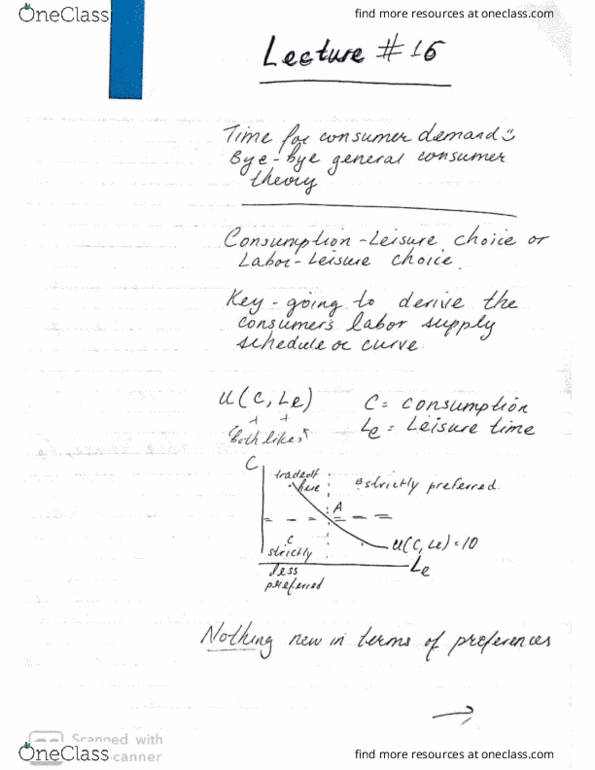 OneClass
find more resources at oneclass.com
Lecture #16
Time for consumer demand
Bye-bye general consumer
theory
Consumption-Leisure choice or
Labor-Leisure choice.
Key - going to derive the
consumers labor supply
schedule or curve
U(C, Le)
C = consumption
+ +
Le = Leisure time
"both likes"
C
tradeoff
here
B strictly preferred
A
C
strictly
U(C, Le) = 10
Le
less
preferred
Nothing new in terms of preferences
→
Scanned with
canner
OneClass
find more resources at oneclass.com